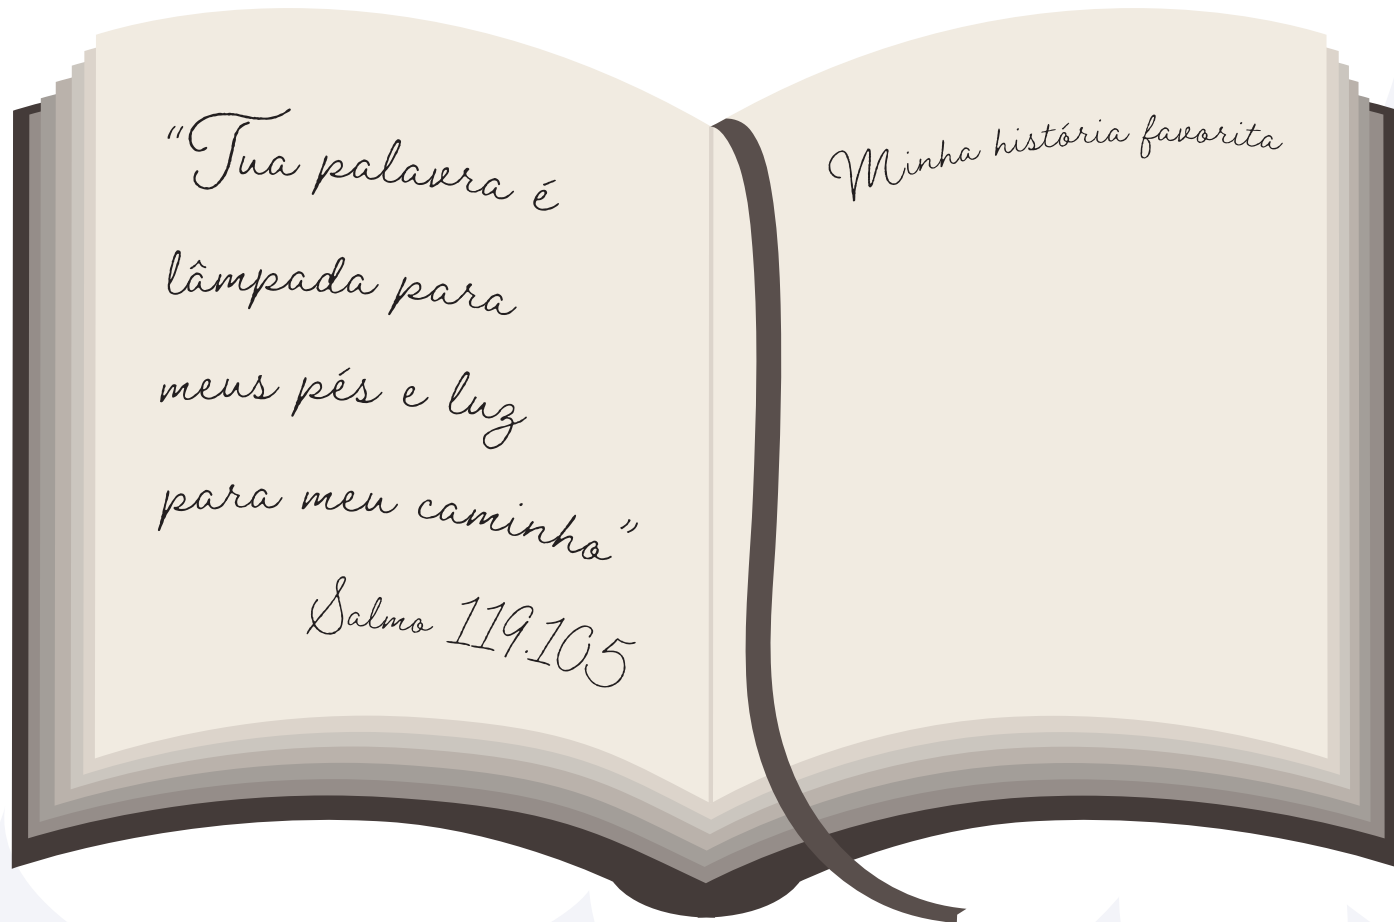 “Tua palavra é
lâmpada para
meus pés e luz
para meu caminho”
Salmo 119.105
Minha história favorita